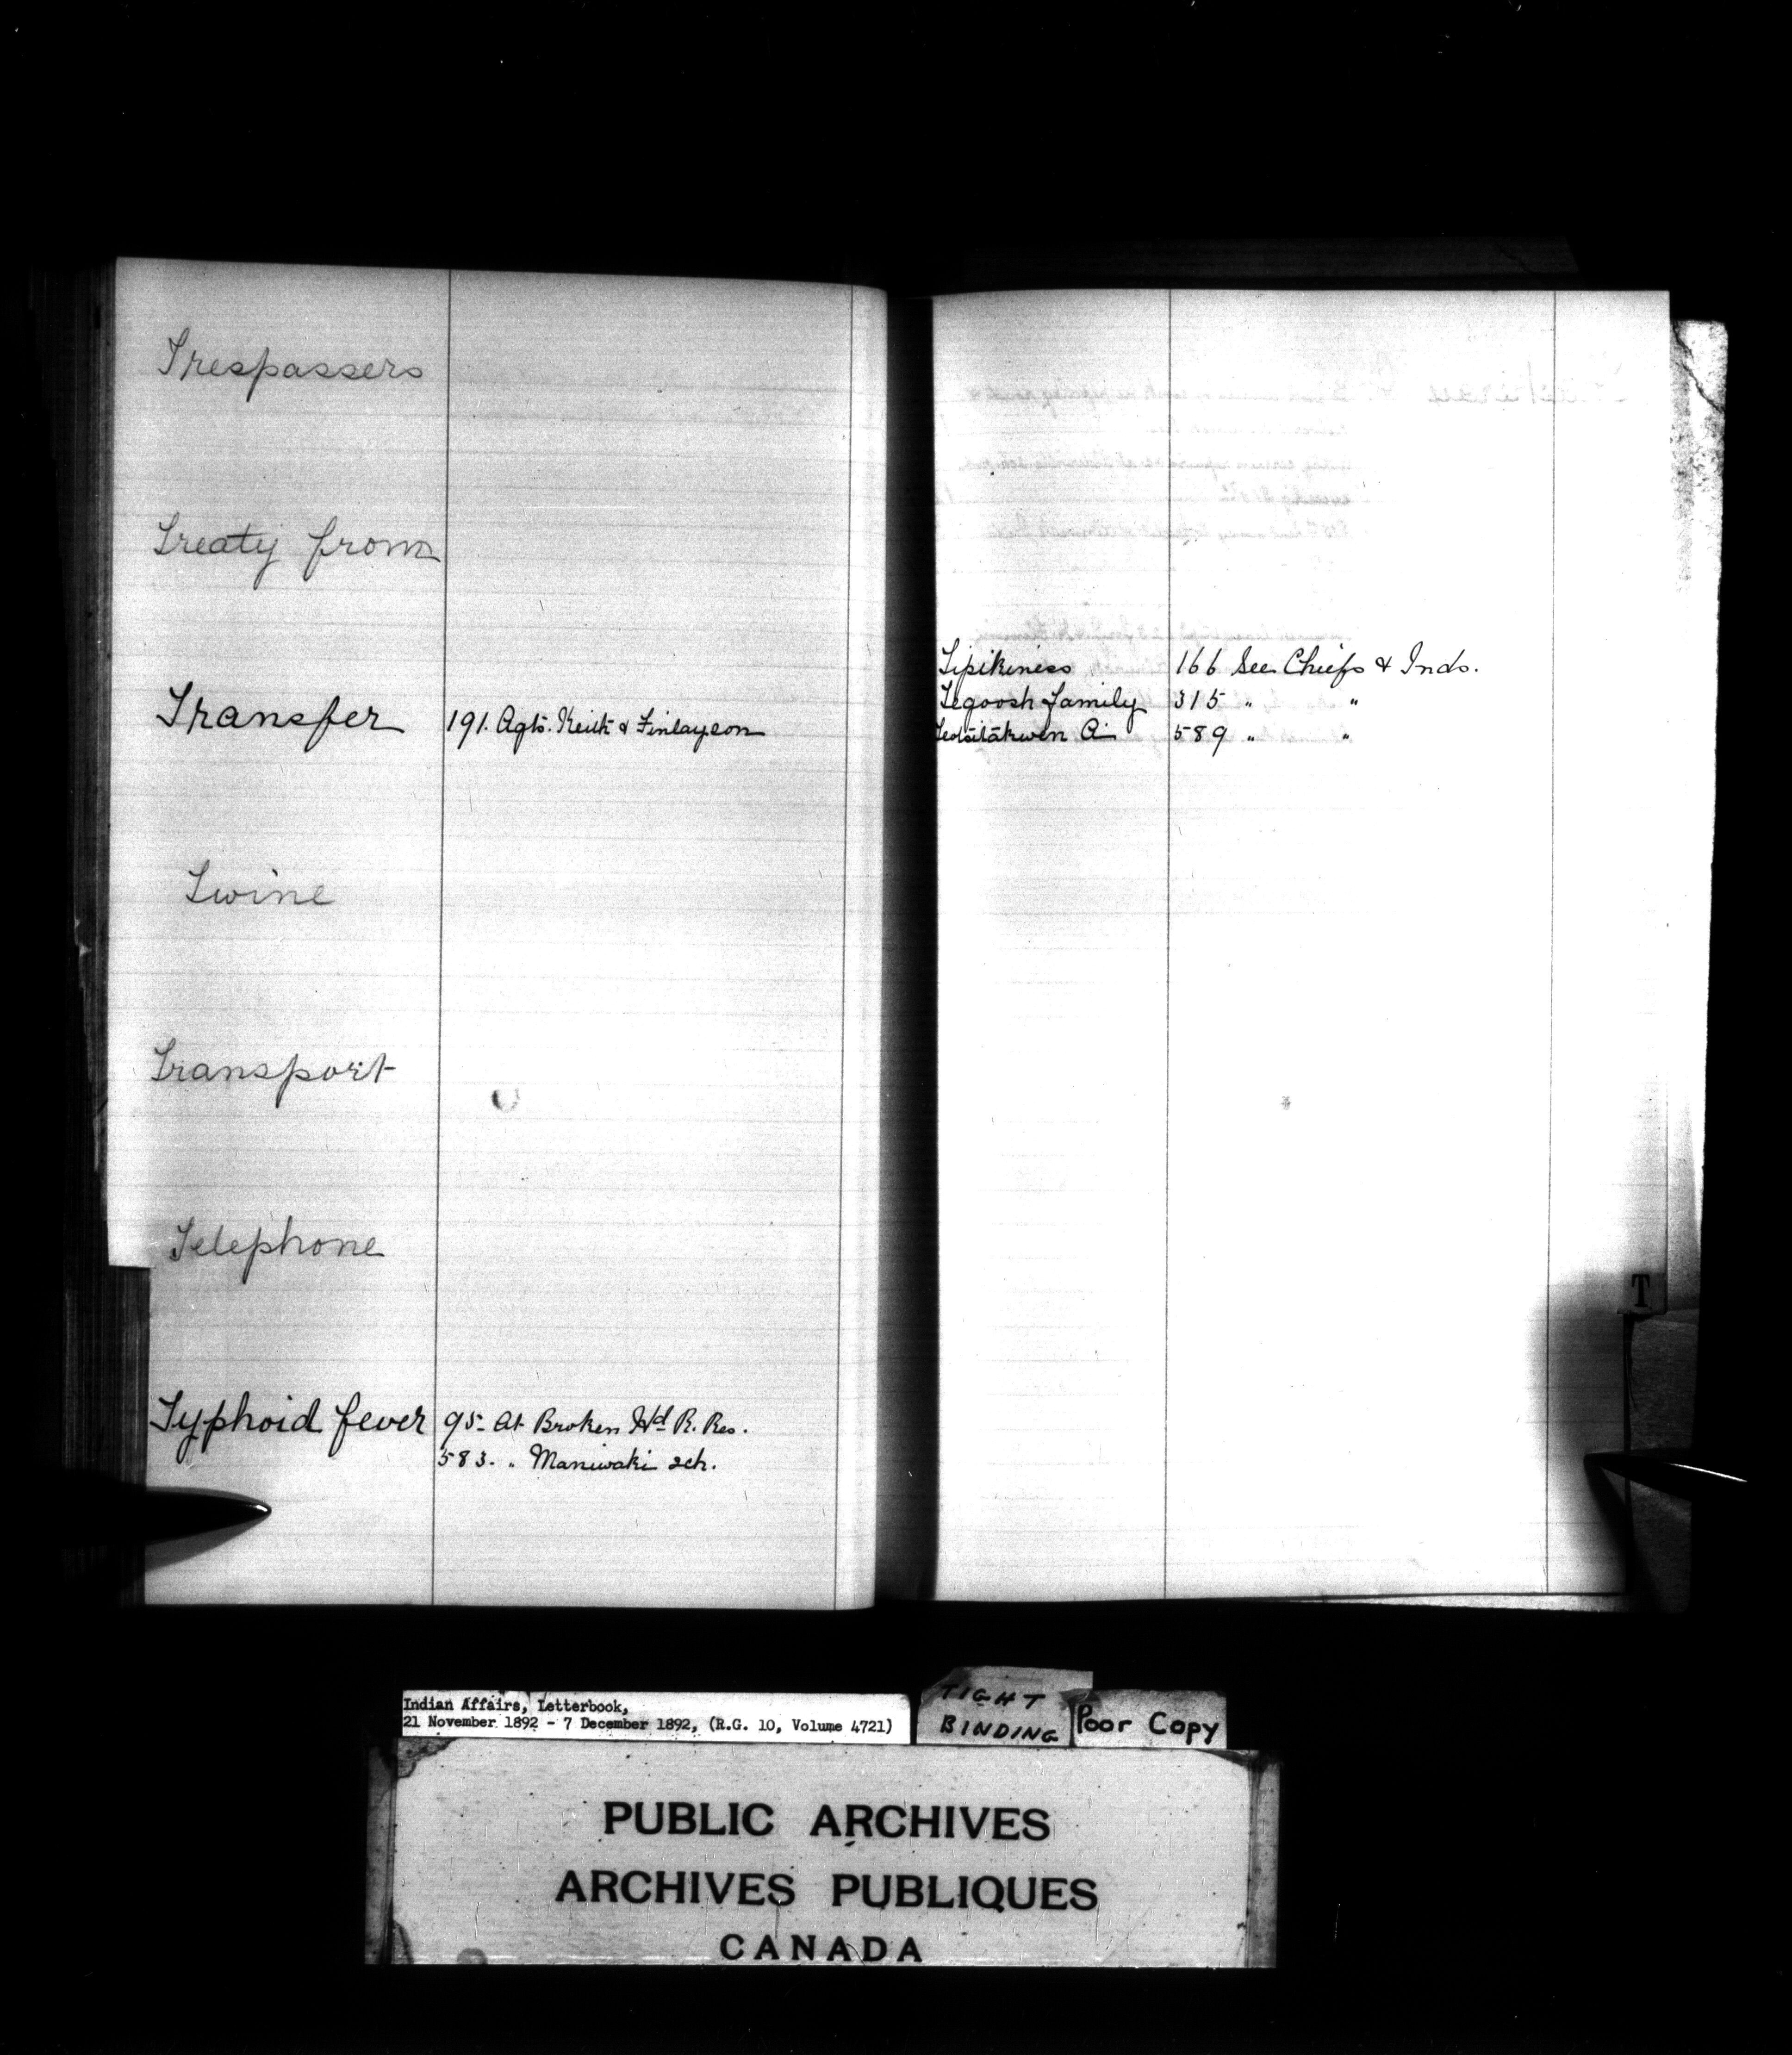 Trespassers
Treaty from
Transfer 191. Agts. Keith & Finlayson
Twine
Transport
Telephone
Typhoid fever 95- At Broken Hd R. Res.
583- " Maniwaki sch.
Tipikiness 166 See Chiefs & Inds.
Tegoosh family 315 " "
589 " "
T
Indian Affairs, Letterbook,
21 November 1892 - 7 December 1892, (R.G. 10, Volume 4721)
TIGHT
BINDING
Poor Copy
PUBLIC ARCHIVES
ARCHIVES PUBLIQUES
CANADA